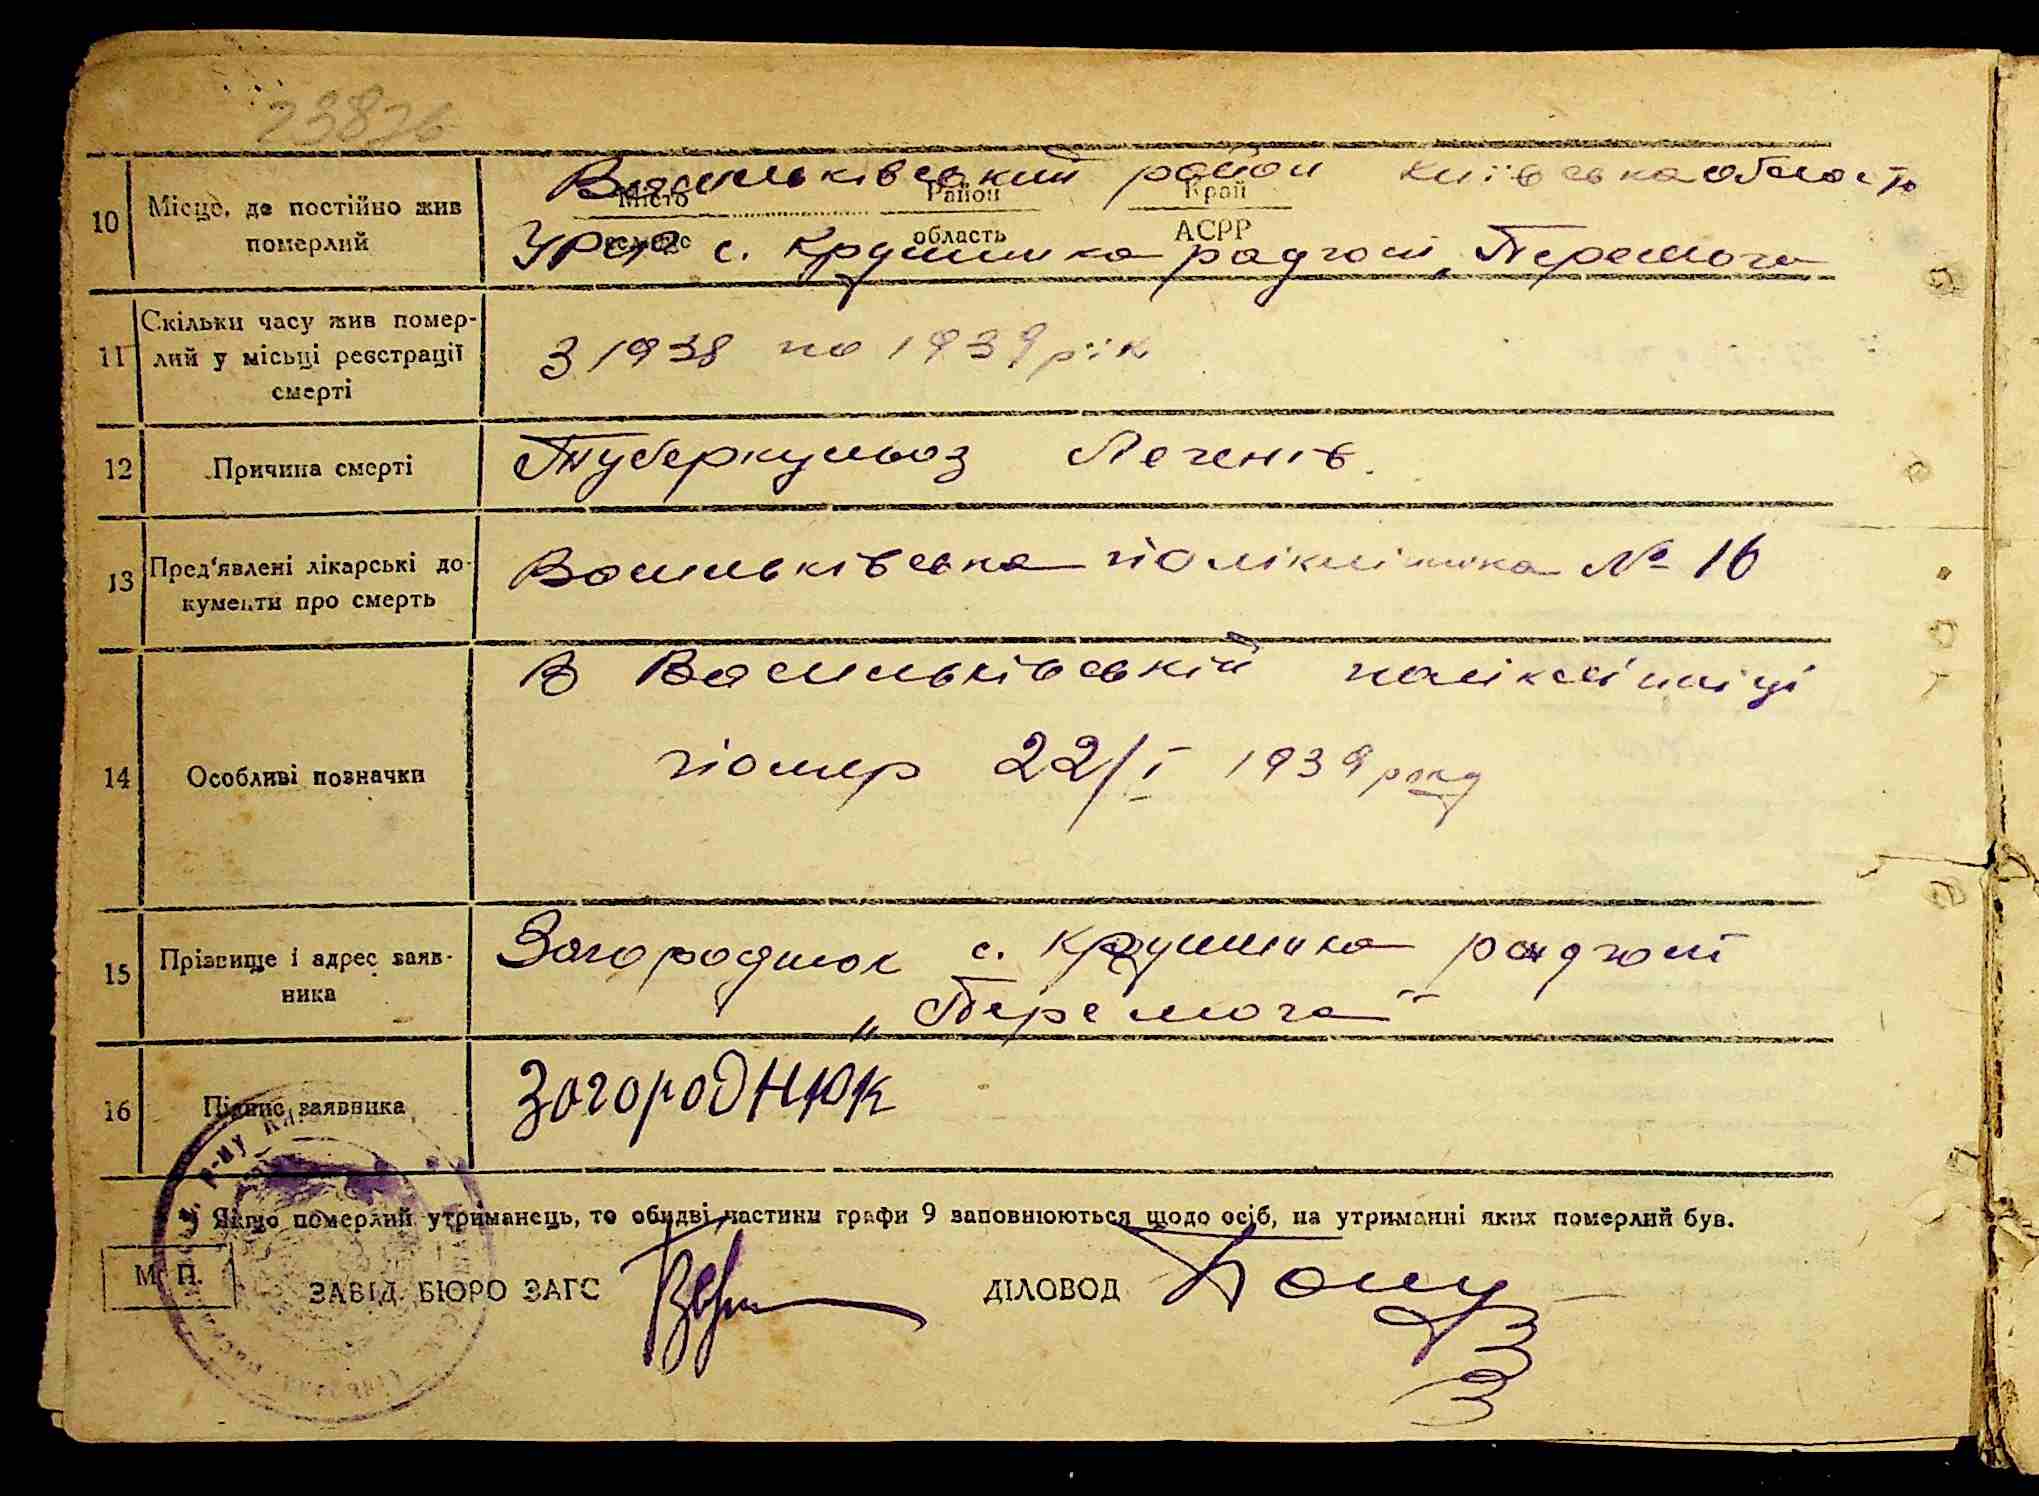 23826
10 Місце, де постійно жив
померлий
Васильківський район Київська область
Місто Район Край
селище область АСРР
УРСР с. Крушинка радгосп „Перемога
11 Скільки часу жив помер-
лий у місьці реєстрації
смерті
З 1938 по 1939 рік
12 Причина смерті
Туберкульоз Легенів.
13 Пред'явлені лікарські до-
кументи про смерть
Васильківська поліклініка № 16
14 Особливі позначки
В Васильківській поліклініці
помер 22/I 1939 року
15 Прізвище і адрес заяв-
ника
Загороднюк с. Крушинка радгосп
„Перемога"
16 Підпис заявника
Загороднюк
Якщо померлий утриманець, то обидві частини графи 9 заповнюються щодо осіб, на утриманні яких померлий був.
М. П.
ЗАВІД. БЮРО ЗАГС ДІЛОВОД